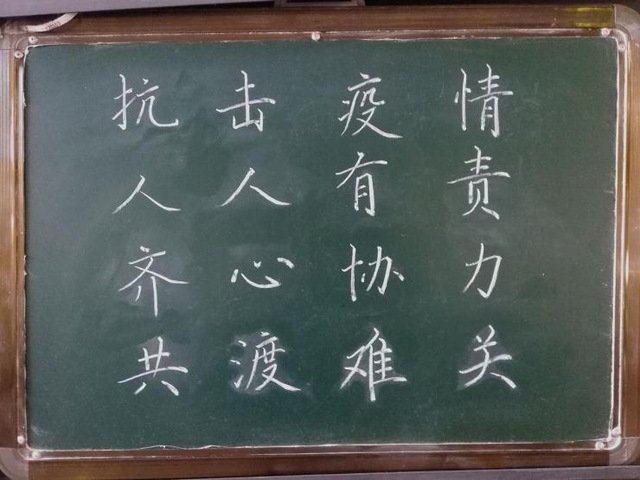 抗击疫情
人人有责
齐心协力
共渡难关